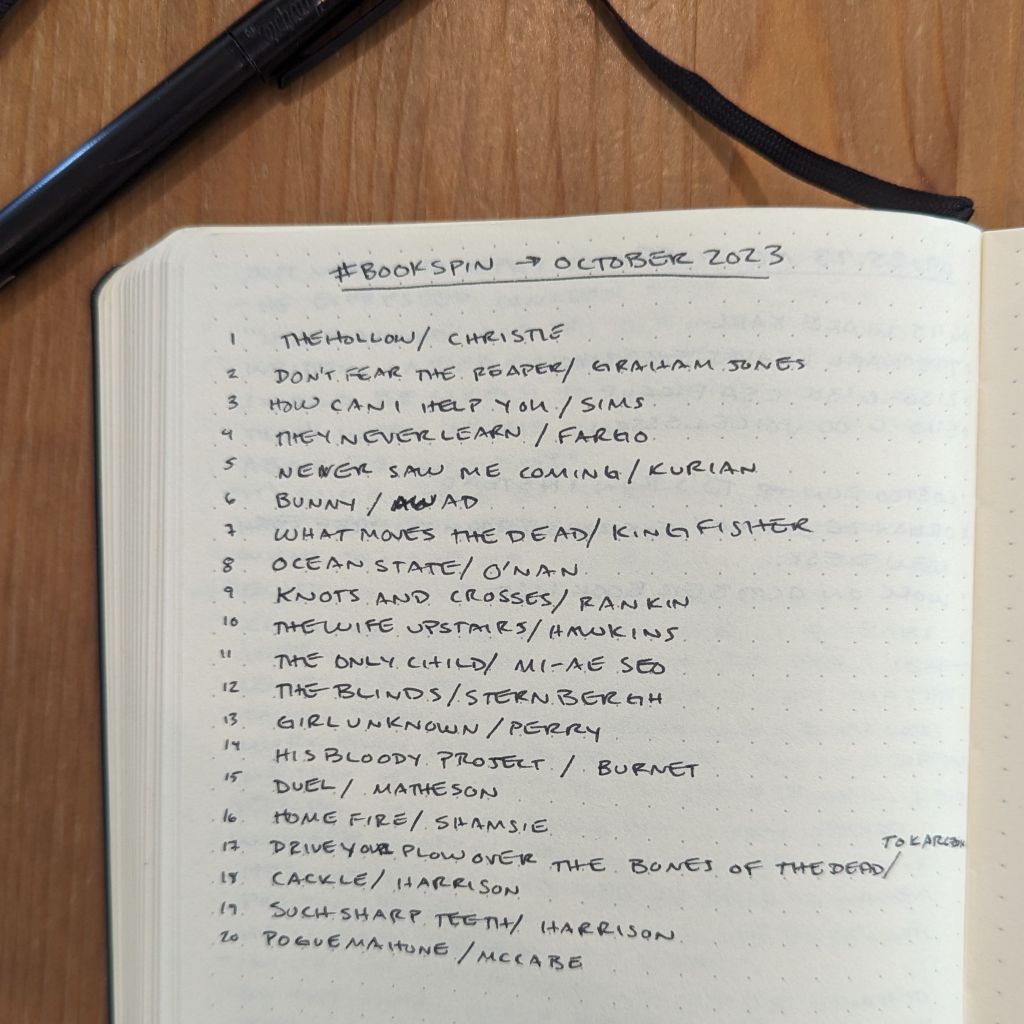 #BOOKSPIN → OCTOBER 2023
1 THE HOLLOW / CHRISTIE
2 DON'T FEAR THE REAPER / GRAHAM JONES
3 HOW CAN I HELP YOU / SIMS
4 THEY NEVER LEARN / FARGO
5 NEVER SAW ME COMING / KURIAN
6 BUNNY / AWAD
7 WHAT MOVES THE DEAD / KINGFISHER
8 OCEAN STATE / O'NAN
9 KNOTS AND CROSSES / RANKIN
10 THE WIFE UPSTAIRS / HAWKINS
11 THE ONLY CHILD / MI-AE SEO
12 THE BLINDS / STERNBERGH
13 GIRL UNKNOWN / PERRY
14 HIS BLOODY PROJECT / BURNET
15 DUEL / MATHESON
16 HOME FIRE / SHAMSIE
17 DRIVE YOUR PLOW OVER THE BONES OF THE DEAD / TOKARCZUK
18 CACKLE / HARRISON
19 SUCH SHARP TEETH / HARRISON
20 POGUEMAHONE / MCCABE